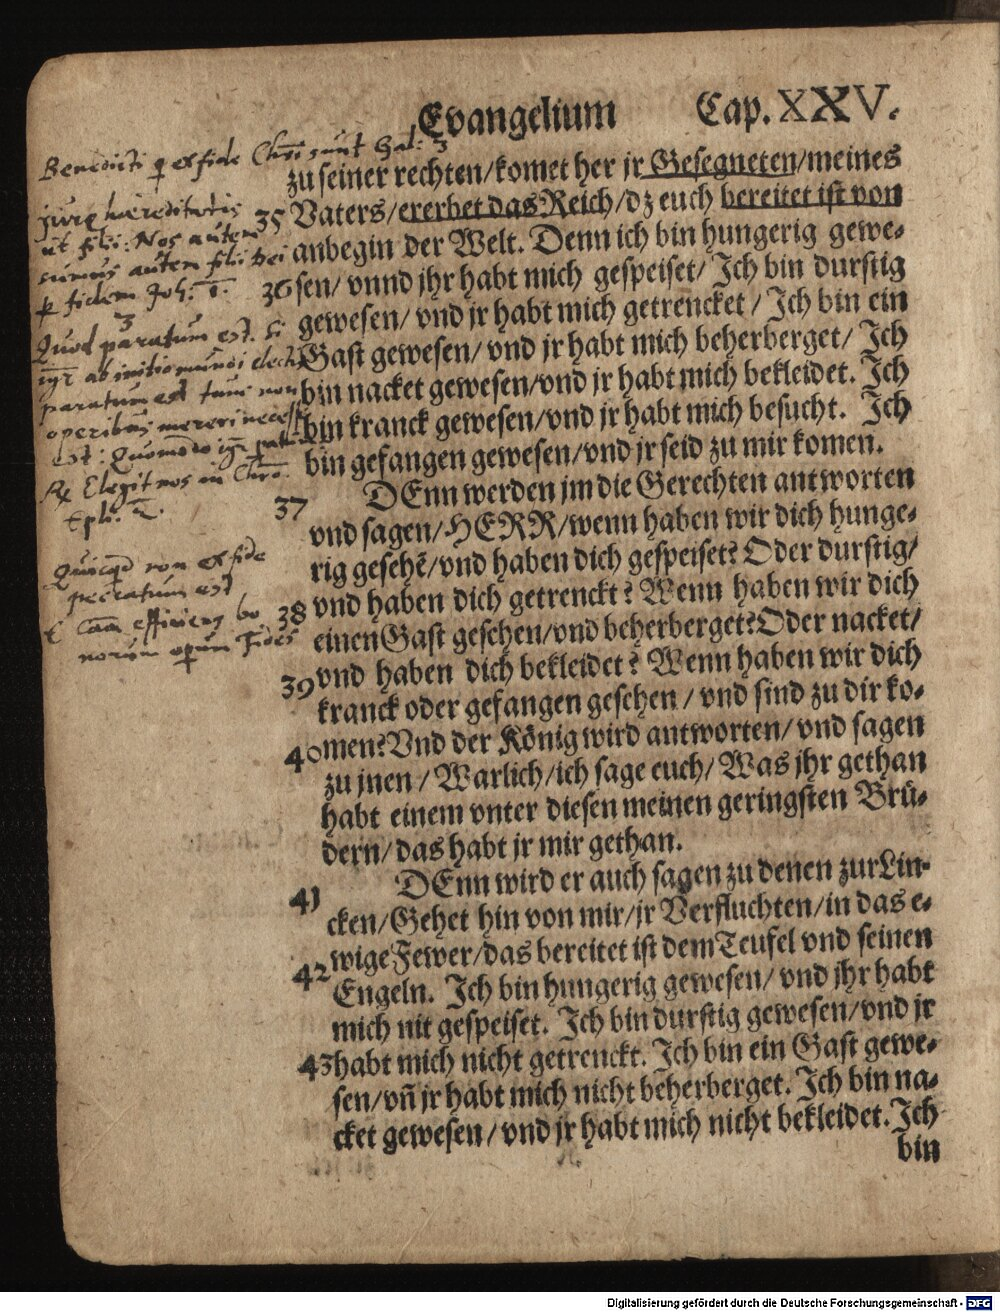 Evangelium Cap. XXV.
Benedicti q ex fide Chri sunt Gal: 3
jure hereditatis
ut filii. Nos autem
sumus autem filii Dei
p fidem Joh: 1.
3
Quod paratum est. Si
igr ab initio mundi
paratum est tum non
operibus mereri necesse
est: Quomodo igr
Rx Elegit nos in Chro.
Eph: 1.
Quicqd non ex fide
peccatum est
Cam efficiens bo
norum operum Fides
zu seiner rechten/komet her jr Gesegneten/meines
35 Vaters/ererbet das Reich/dz euch bereitet ist von
anbegin der Welt. Denn ich bin hungerig gewe-
36 sen/ vnnd jhr habt mich gespeiset/ Ich bin durstig
gewesen/ vnd jr habt mich getrencket / Ich bin ein
Gast gewesen/ vnd jr habt mich beherberget/ Ich
bin nacket gewesen/vnd jr habt mich bekleidet. Ich
bin kranck gewesen/vnd jr habt mich besucht. Ich
bin gefangen gewesen/vnd jr seid zu mir komen.
37 DEnn werden jm die Gerechten antworten
vnd sagen/HERR/wenn haben wir dich hunge-
rig gesehẽ/vnd haben dich gespeiset? Oder durstig/
38 vnd haben dich getrenckt? Wenn haben wir dich
einen Gast gesehen/vnd beherberget? Oder nacket/
39 vnd haben dich bekleidet? Wenn haben wir dich
kranck oder gefangen gesehen / vnd sind zu dir ko-
40 men? Vnd der König wird antworten/ vnd sagen
zu jnen / Warlich/ich sage euch/ Was jhr gethan
habt einem vnter diesen meinen geringsten Brü-
dern/das habt jr mir gethan.
41 DEnn wird er auch sagen zu denen zur Lin-
cken/Gehet hin von mir/jr Verfluchten/in das e-
wige Fewer/das bereitet ist dem Teufel vnd seinen
42 Engeln. Ich bin hungerig gewesen/ vnd jhr habt
mich nit gespeiset. Ich bin durstig gewesen/vnd jr
43 habt mich nicht getrenckt. Ich bin ein Gast gewe-
sen/vñ jr habt mich nicht beherberget. Ich bin na-
cket gewesen/vnd jr habt mich nicht bekleidet. Ich
bin
Digitalisierung gefördert durch die Deutsche Forschungsgemeinschaft - DFG